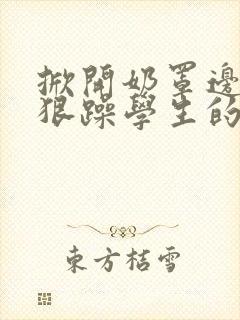 掀開奶罩邊
狠躁學生的
東方桔雪